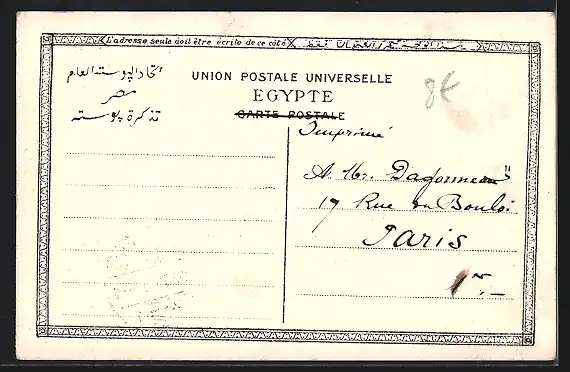 L'adresse seule doit être écrite de ce côté
اتحاد البوسته العام
مصر
تذكرة بوسته
UNION POSTALE UNIVERSELLE
EGYPTE
CARTE POSTALE
8€
Imprimé
A Mr.
17 Rue du Bouloi
Paris
1er